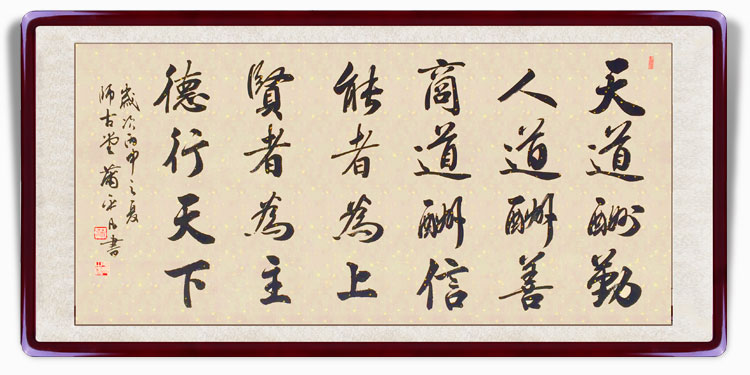 天道酬勤
人道酬善
商道酬信
能者為上
賢者為主
德行天下
歲次丙申之夏
師古堂蕭平凡書